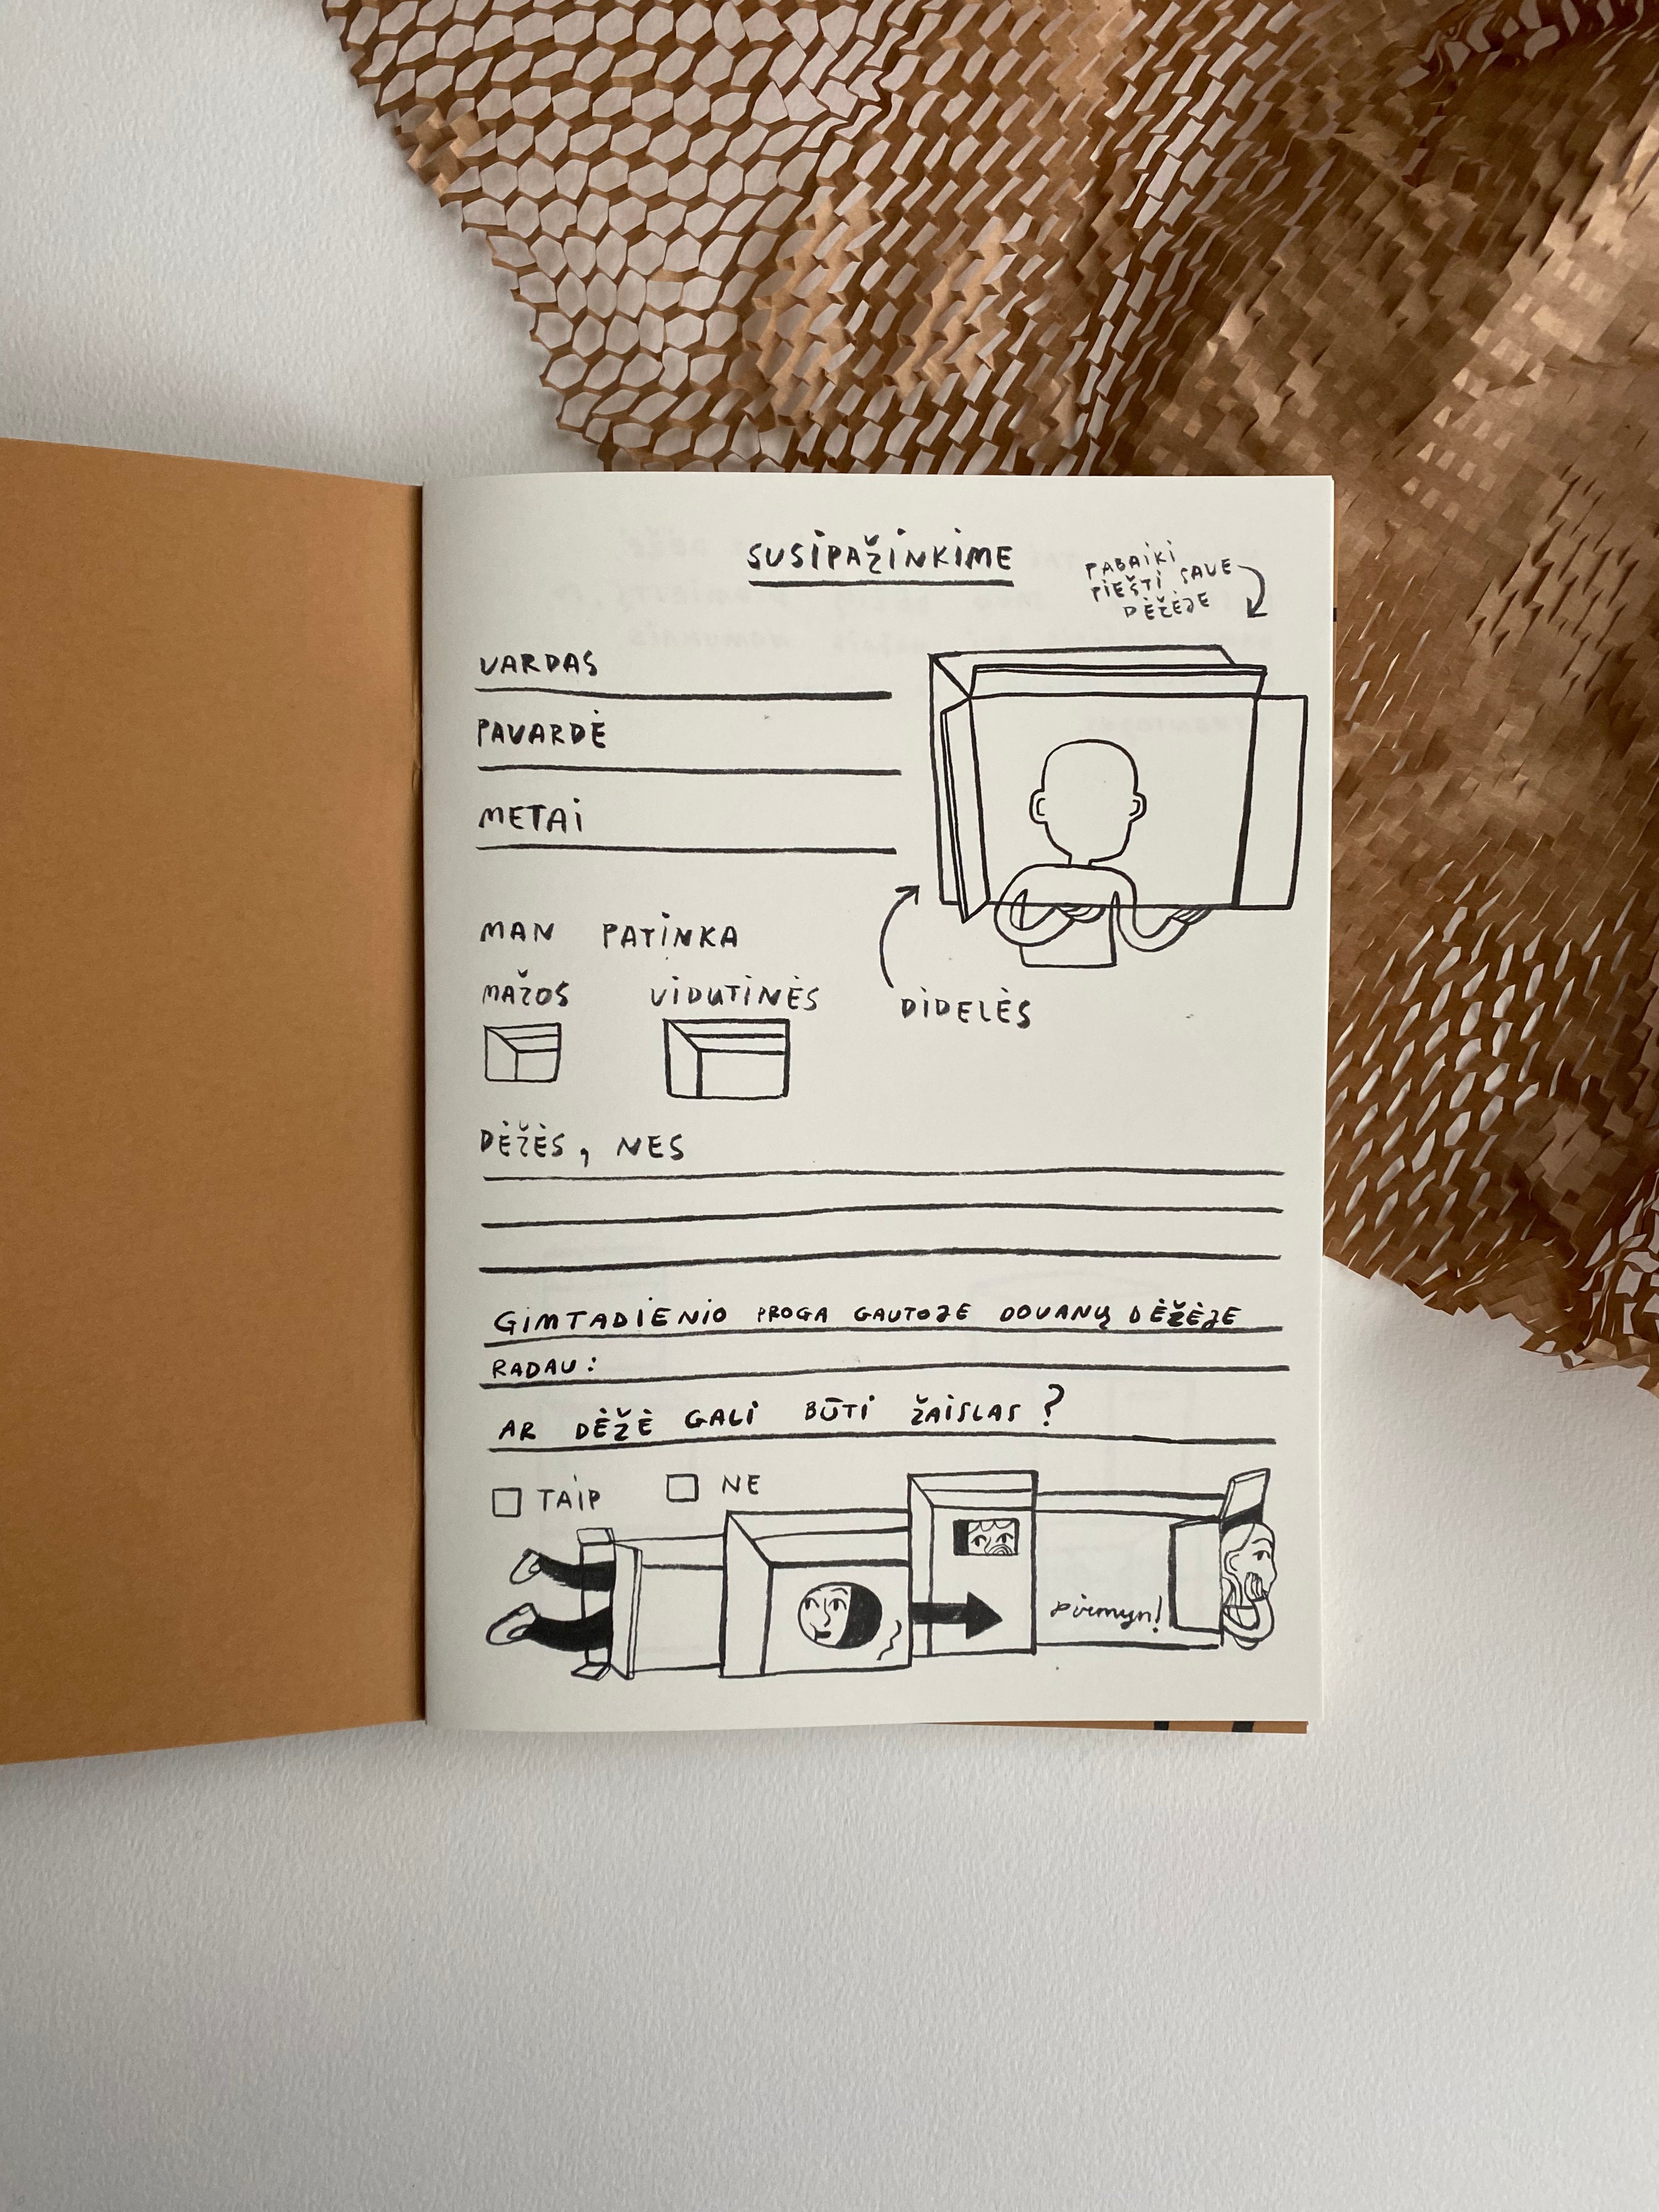 SUSIPAŽINKIME
PABAIKI
PIEŠTI SAVE
DĖŽĖJE
VARDAS
PAVARDĖ
METAI
MAN PATINKA
MAŽOS VIDUTINĖS DIDELĖS
DĖŽĖS, NES
GIMTADIENIO PROGA GAUTOJE DOVANŲ DĖŽĖJE
RADAU:
AR DĖŽĖ GALI BŪTI ŽAISLAS?
TAIP NE
pirmyn!